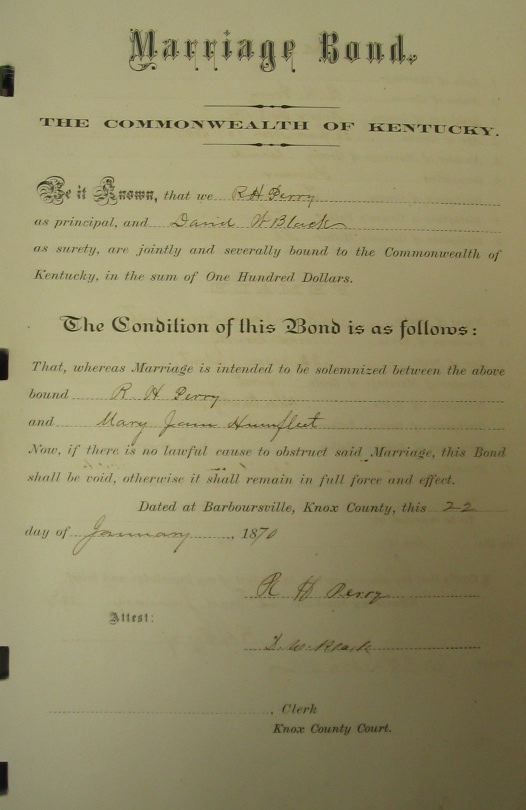 Marriage Bond.
THE COMMONWEALTH OF KENTUCKY.
Be it Known, that we R H Perry
as principal, and David W Black
as surety, are jointly and severally bound to the Commonwealth of
Kentucky, in the sum of One Hundred Dollars.
The Condition of this Bond is as follows:
That, whereas Marriage is intended to be solemnized between the above
bound R H Perry
and Mary Jane Humfleet
Now, if there is no lawful cause to obstruct said Marriage, this Bond
shall be void, otherwise it shall remain in full force and effect.
Dated at Barboursville, Knox County, this 22
day of January, 1870
R H Perry
Attest:
D. W. Black
, Clerk
Knox County Court.